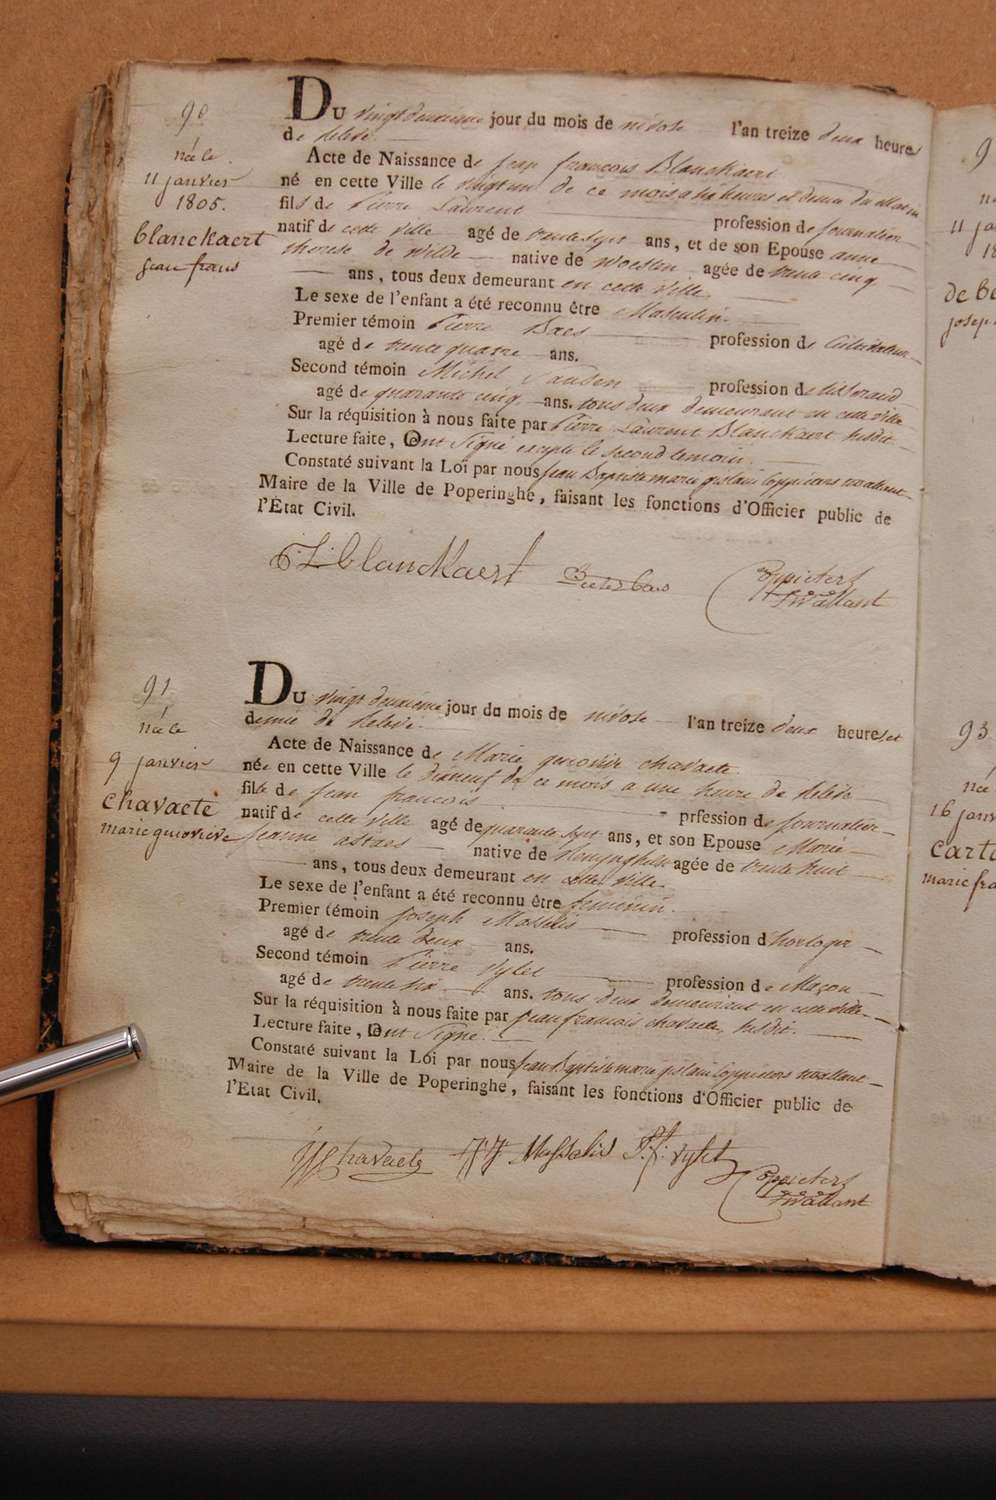 90
née le
11 janvier
1805.
blanckaert
jean frans
Du vingt deuxieme jour du mois de nivose l'an treize deux heures
de relevé
Acte de Naissance de jean francois Blanckaert
né en cette Ville le vingt un de ce mois a six heures et demie du matin
fils de Pierre Laurent profession de journalier
natif de cette ville agé de trente sept ans, et de son Epouse anne
therese de Wilde native de Woesten agée de trente cinq
ans, tous deux demeurant en cette Ville
Le sexe de l'enfant a été reconnu être Masculin.
Premier témoin Pierre Baes profession de Cultivateur
agé de trente quatre ans.
Second témoin Michel profession de
agé de quarante cinq ans. tous deux demeurant en cette ville
Sur la réquisition à nous faite par Pierre Laurent Blanckaert susdit
Lecture faite, Ont Signé excepté le second temoin.
Constaté suivant la Loi par nous jean Baptiste marie gislain Coppieters wallant
Maire de la Ville de Poperinghe, faisant les fonctions d'Officier public de
l'État Civil.
P:L: blanckaert Pieter baes Coppieters
Twallant
91
née le
9 janvier
chavaete
marie genovieve
Du vingt deuxieme jour du mois de nivose l'an treize deux heures et
demie de relevé
Acte de Naissance de Marie genovive chavaete
née en cette Ville le dixneuf de ce mois a une heure de relevée
fille de jean francois prfession de journalier
natif de cette ville agé de quarante sept ans, et son Epouse Marie
jeanne astaes native de Reninghelst agée de trente huit
ans, tous deux demeurant en cette Ville.
Le sexe de l'enfant a été reconnu être feminin.
Premier témoin joseph Masselis profession d'horloger
agé de trente deux ans.
Second témoin Pierre Vylet profession de Maçon
agé de trente six ans. tous deux demeurant en cette ville
Sur la réquisition à nous faite par jean francois chavaete susdit.
Lecture faite, Ont Signé.
Constaté suivant la Loi par nous jean Baptiste marie gislain Coppieters wallant
Maire de la Ville de Poperinghe, faisant les fonctions d'Officier public de
l'Etat Civil.
chavaete Masselis vylet
Coppieters
Twallant
9
11 jan
de be
joseph
93
née
16 janv
carte
marie fra